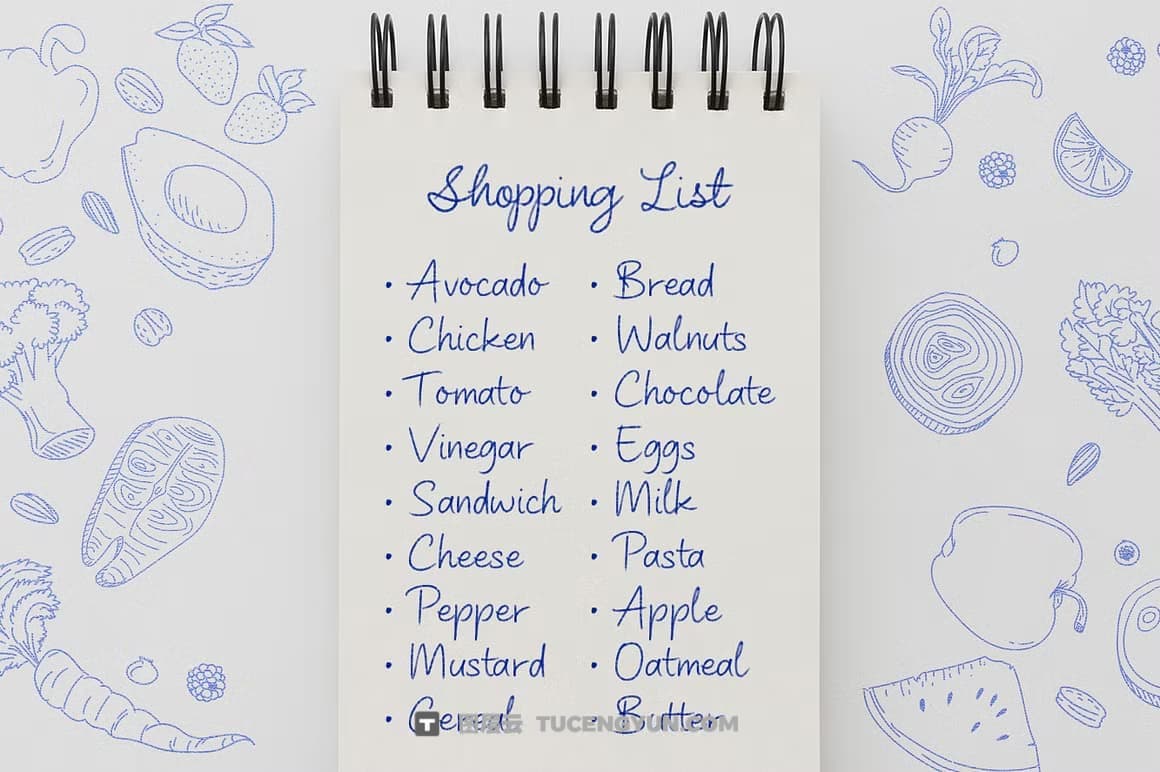 Shopping List
• Avocado
• Chicken
• Tomato
• Vinegar
• Sandwich
• Cheese
• Pepper
• Mustard
• Cereal
• Bread
• Walnuts
• Chocolate
• Eggs
• Milk
• Pasta
• Apple
• Oatmeal
• Butter
T 图层云 TUCENGYUN.COM